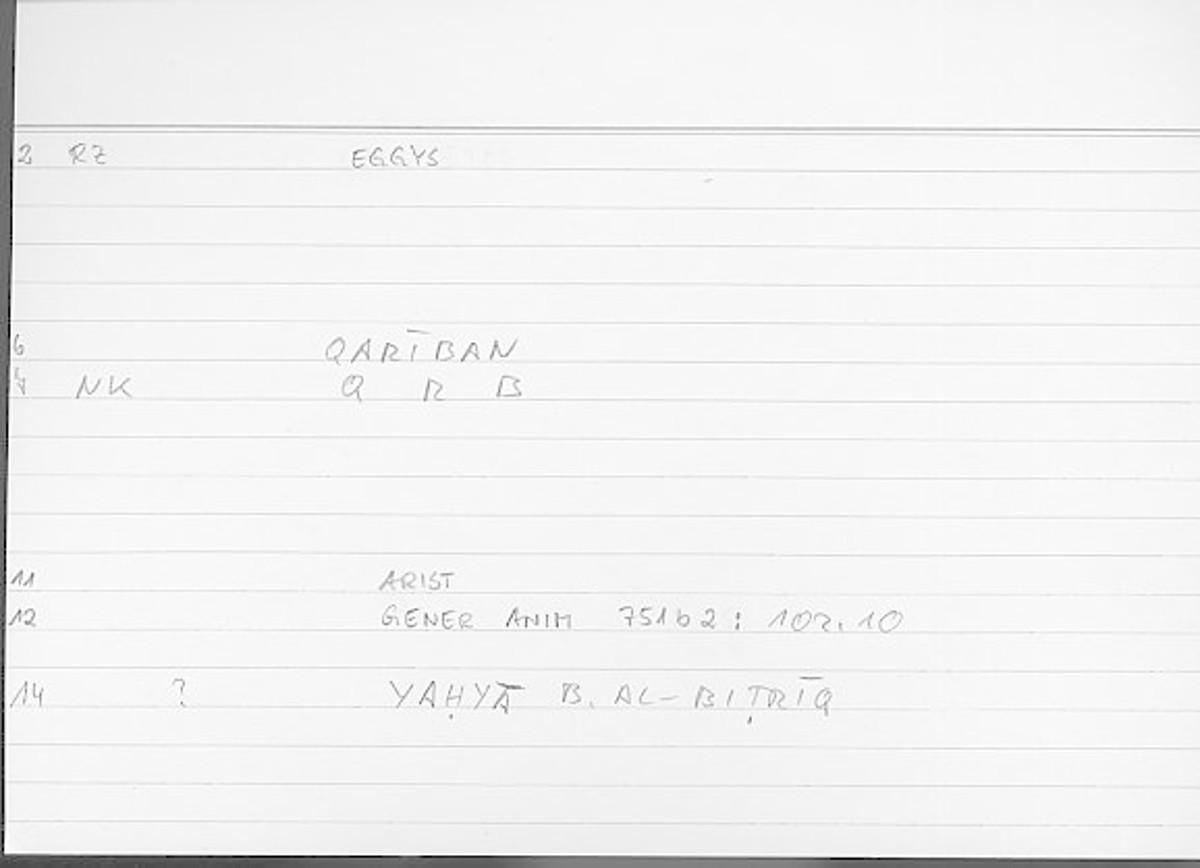 2 RZ EGGYS
6 QARĪBAN
NK Q R B
11 ARIST
12 GENER ANIM 751b2: 102.10
14 ? YAḤYĀ B. AL-BIṬRĪQ